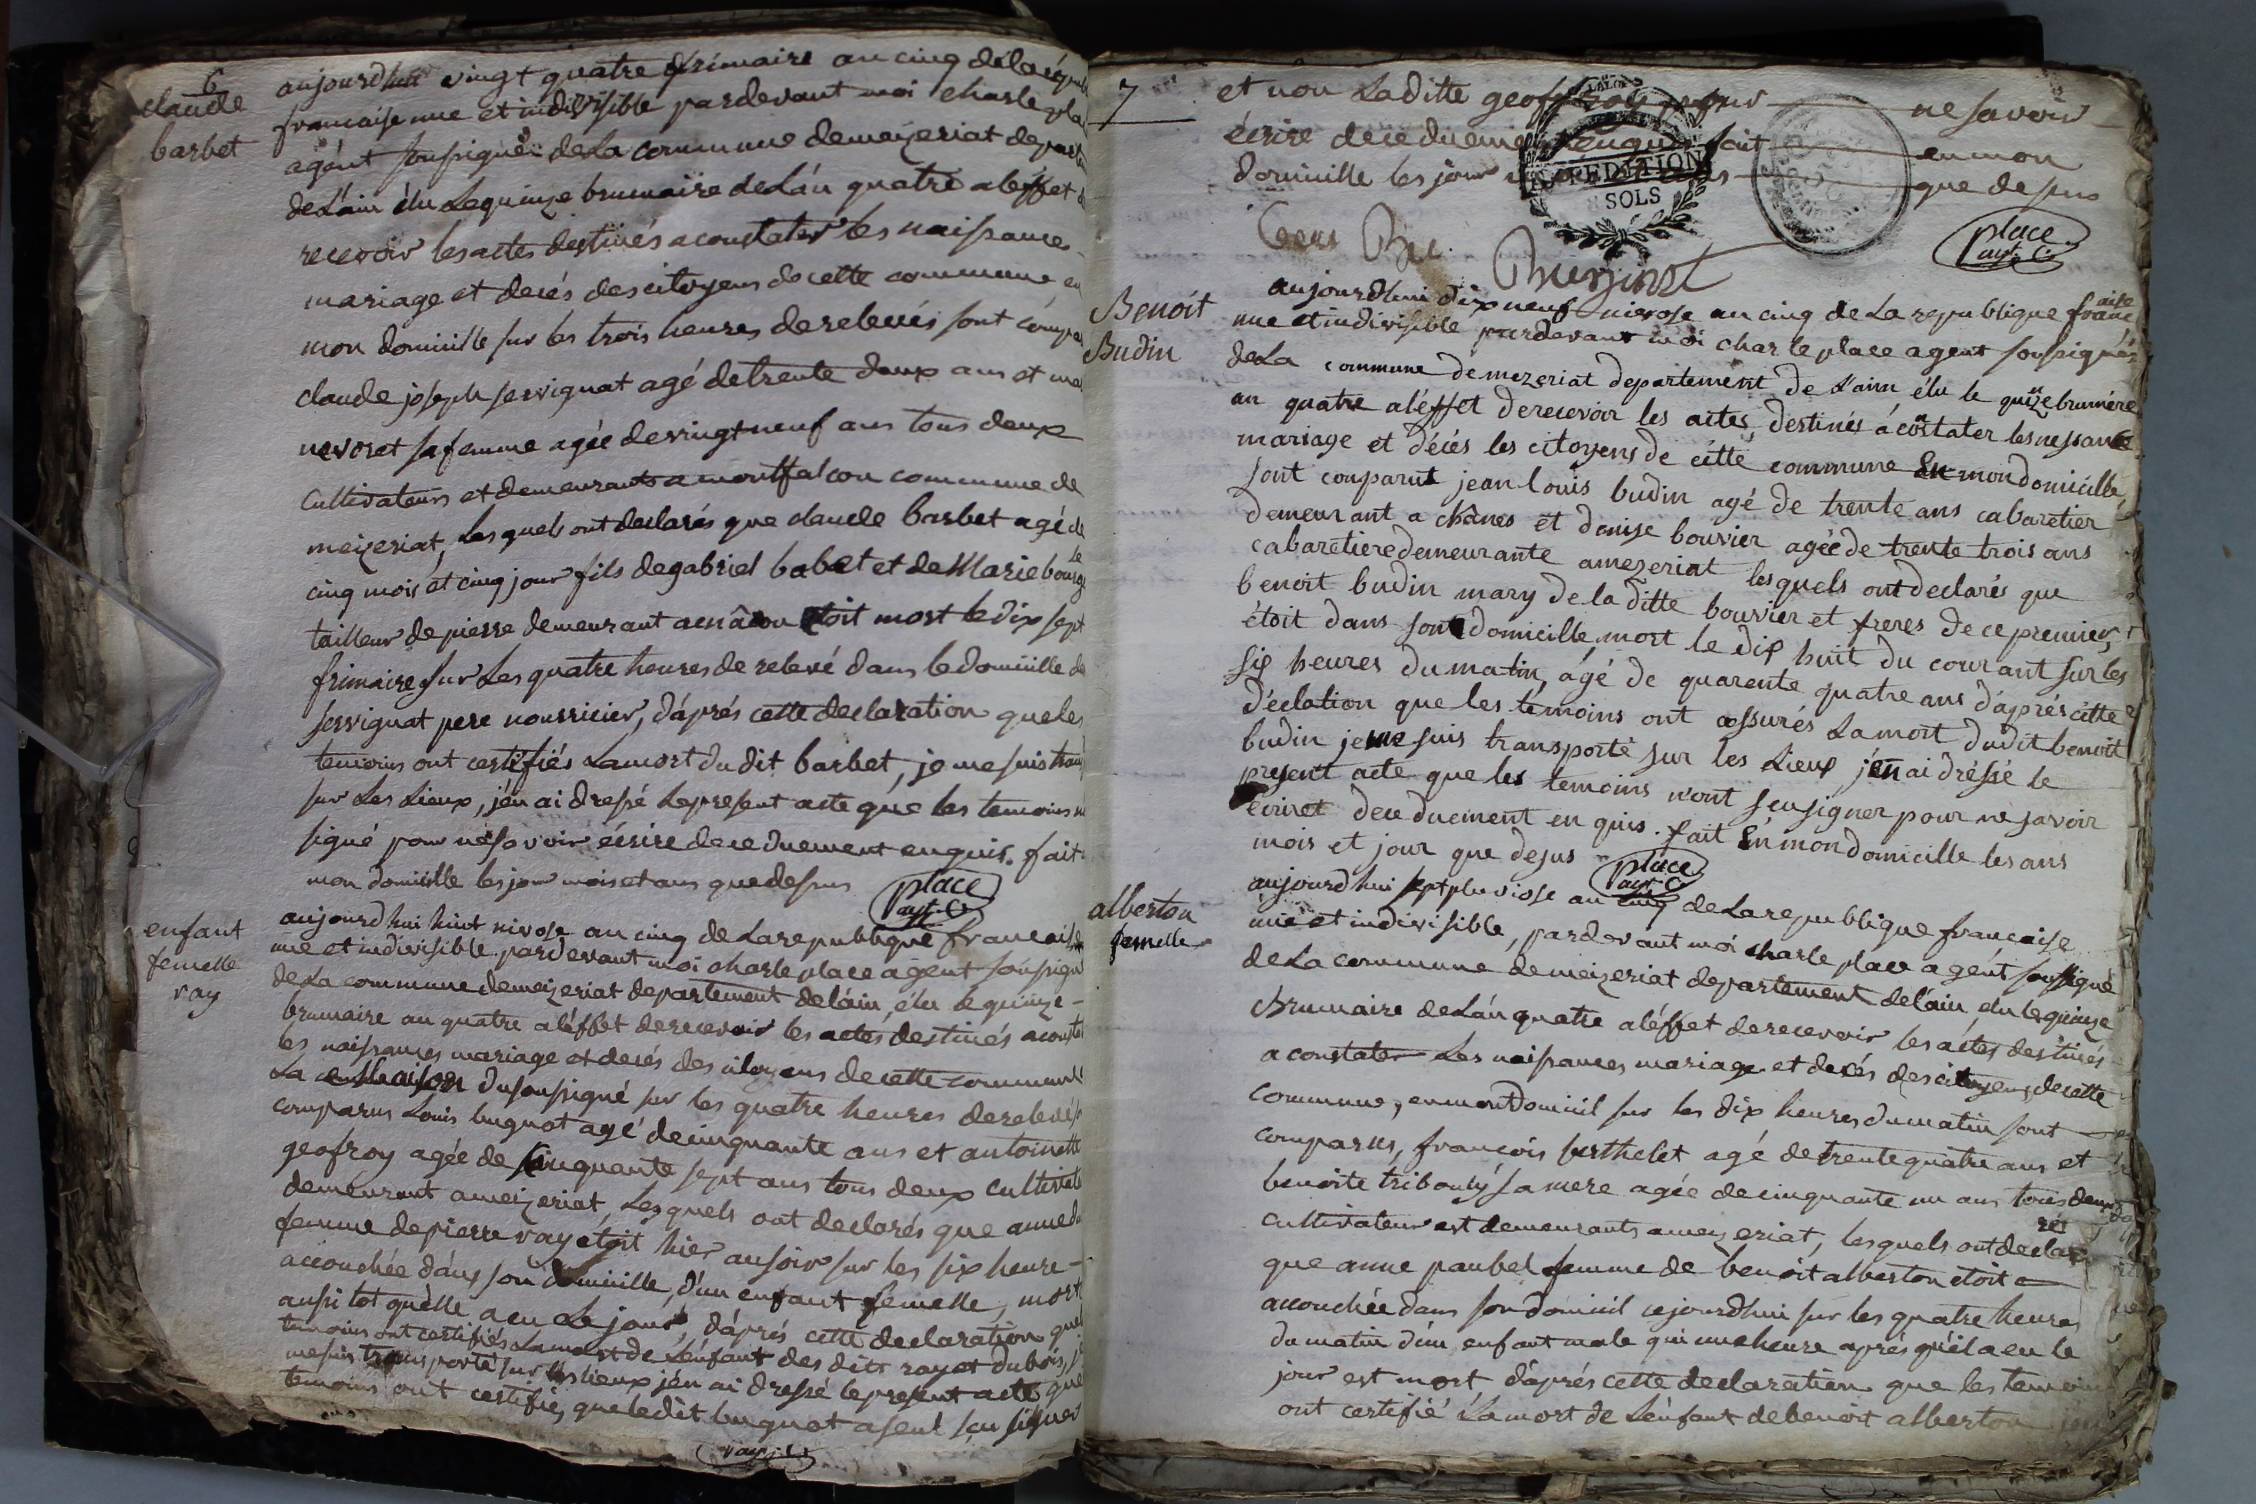 6
claude
barbet
aujourdhui vingt quatre frimaire an cinq de la répub
francaise une et indivisible pardevant moi charle pla
agént soussigné de La commune demezeriat departe
deLáin élu Lequinze brumaire deLán quatre aléffet d
recevoir lesactes destinés aconstater les naissance
mariage et decés descitoyens de cette commune en
mon domicille sur les trois heures derelevés sont compa
claude joseph servignat agé detrente deux ans et ma
nevoret sa femme agée devingtneuf ans tous deux
cultivateurs et demeurants a montfalcon commune de
meizeriat, Lesquels ont declarés que claude barbet agé de
cinq mois et cinq jour fils degabriel babet et de Marie bourge
tailleur de pierre demeurant amâcon étoit mort le dix sept
frimaire sur Les quatre heures de relevé dans ledomicille du
servignat pere nourricier, dáprés cette declaration queles
temoins ont certifiés Lamort du dit barbet, je mesuis trans
sur Les Lieux, jén ai dressé Lepresent acte que les temoins n
signé pour nesavoir écrire dece duement enquis. fait
mon domicille les jour mois et ans quedessus
place
agt. C.
enfant
femelle
ray
aujourdhui huit nivose an cinq de Larepublique francaise
une et indivisible pardevant moi charle place agent soussigné
de La commune demeizeriat departement deláin, élu le quinze
brumaire an quatre aléffet derecevoir les actes destinés aconstat
les naissances mariage et decés des citoyens decette commune
La maison du soussigné sur les quatre heures derelevés
comparus Louis bugnot agé decinquante ans et antoinette
geofroy agée de cinquante sept ans tous deux cultivate
demeurant ameizeriat, Lesquels ont declarés que anne du
femme depierre ray étoit hier au soir sur les six heure
accouchée dáns son domicille, d'un enfant femelle, mort
aussi tot quélle a eu Le jour, dáprés cette declaration que
temoins ont certifiés Lamort de Lénfant des dits ray et dubois, j
mesuis transporté sur les lieux jén ai dressé le present acte que
temoins ont certifié, queledit bugnot a seul seu signer
7
et non Laditte geofroy pour ne savoir
écrire dece duement enquis fait en mon
domicille les jour que de sus
EXPEDITION
SOLS
place
agt. C.
Benoit
Budin
aujourdhui dix neuf nivose an cinq de La republique franc
aise
une et indivisible pardevant moi charle place agent soussignés
deLa commune de mezeriat departement de L'ain élu le quinze brumére
an quatre aléffet derecevoir les actes destinés á constater les nessance
mariage et décés les citoyens de cétte commune En mon domicille
sont comparut jean louis budin agé de trente ans cabaretier
demeurant a chânes et denise bouvier agée de trente trois ans
cabaretiere demeurante amezeriat lesquels ont declarés que
benoit budin mary de la ditte bouvier et freres de ce premier,
étoit dans sont domicille, mort le dix huit du courant sur les
six heures du matin, ágé de quarente quatre ans dáprés cétte
déclation que les témoins ont assurés La mort dudit benoit
budin je me suis transporté sur les Lieux j'én ai dréssé le
present acte que les temoins n'ont seu signer pour ne savoir
ecriret dece duement en quis. fait En mon domicille les ans
mois et jour que desus
place
agt. C.
alberton
femelle
aujourdhui sept pluviose an cinq de Larepublique francaise
une et indivisible, pardevant moi charle place agént soussigné
deLa commune demeizeriat departement deláin elu lequinze
Brumaire deLán quatre aléffet derecevoir les áctes destinés
a constater Les naissances mariage et decés descitoyens decette
commune, enmontdomicil sur les dix heures dumatin sont
comparus, françois berthelet agé detrentequatre ans et
benoite tribouly sa mere agée decinquante un ans tous deux
cultivateur est demeurants ameizeriat, lesquels ont declar
rés
que anne paubel femme de benoit alberton étoit
accouchée dans son domicil cejourdhui sur les quatre heures
du matin dún enfant male qui uneheure aprés quéil a eu le
jour est mort dáprés cette declaration que les temoins
ont certifié Lamort de Lénfant debenoit alberton